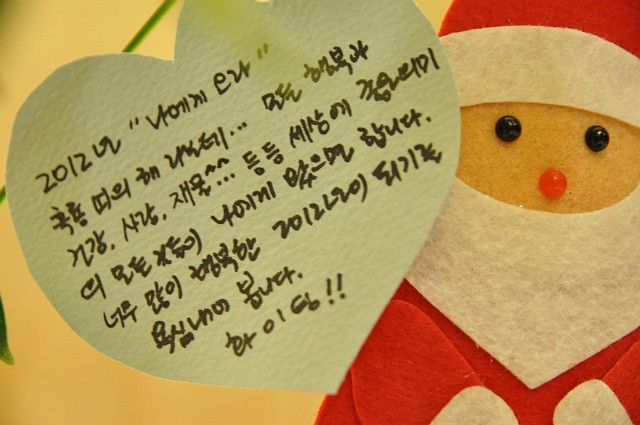 2012년 "나에게 오라"
흑룡 띠의 해 라는데... 모든 행복과
건강, 사랑, 재물^^... 등등 세상에 좋은의미
의 모든것들이 나에게 왔으면 합니다.
너무 많이 행복한 2012년이 되기를
욕심내어 봅니다.
화이팅!!